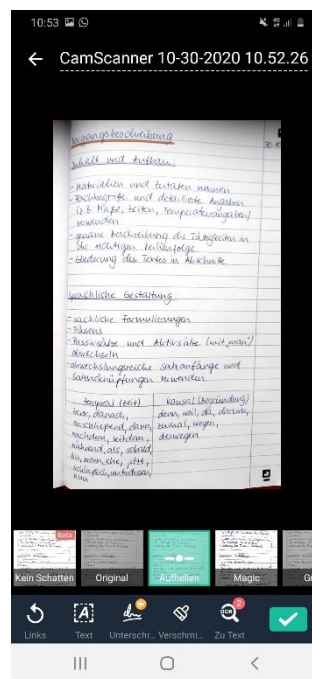 10:53
CamScanner 10-30-2020 10.52.26
Vorgangsbeschreibung
30.10
Inhalt und Aufbau:
- Materialien und Zutaten nennen
- Fachbegriffe und detaillierte Angaben
(z.B. Maße, Zeiten, Temperaturangaben)
verwenden
- genaue Beschreibung der Tätigkeiten in
der richtigen Reihenfolge
- Gliederung des Textes in Abschnitte
sprachliche Gestaltung
- sachliche Formulierungen
- Präsens
- Passivsätze und Aktivsätze (mit „man“)
abwechseln
- abwechslungsreiche Satzanfänge und
Satzverknüpfungen verwenden
temporal (Zeit)
danach,
anschließend, dann,
nachdem, seitdem,
während, als, sobald,
bis, wenn, ehe, jetzt,
schließlich, unterdessen,
nun
kausal (Begründung)
denn, weil, da, darum,
zumal, wegen,
deswegen
Beta
Kein Schatten
Original
Aufhellen
Magic
Links
Text
Unterschr...
Verschmi...
OCR
2
Zu Text